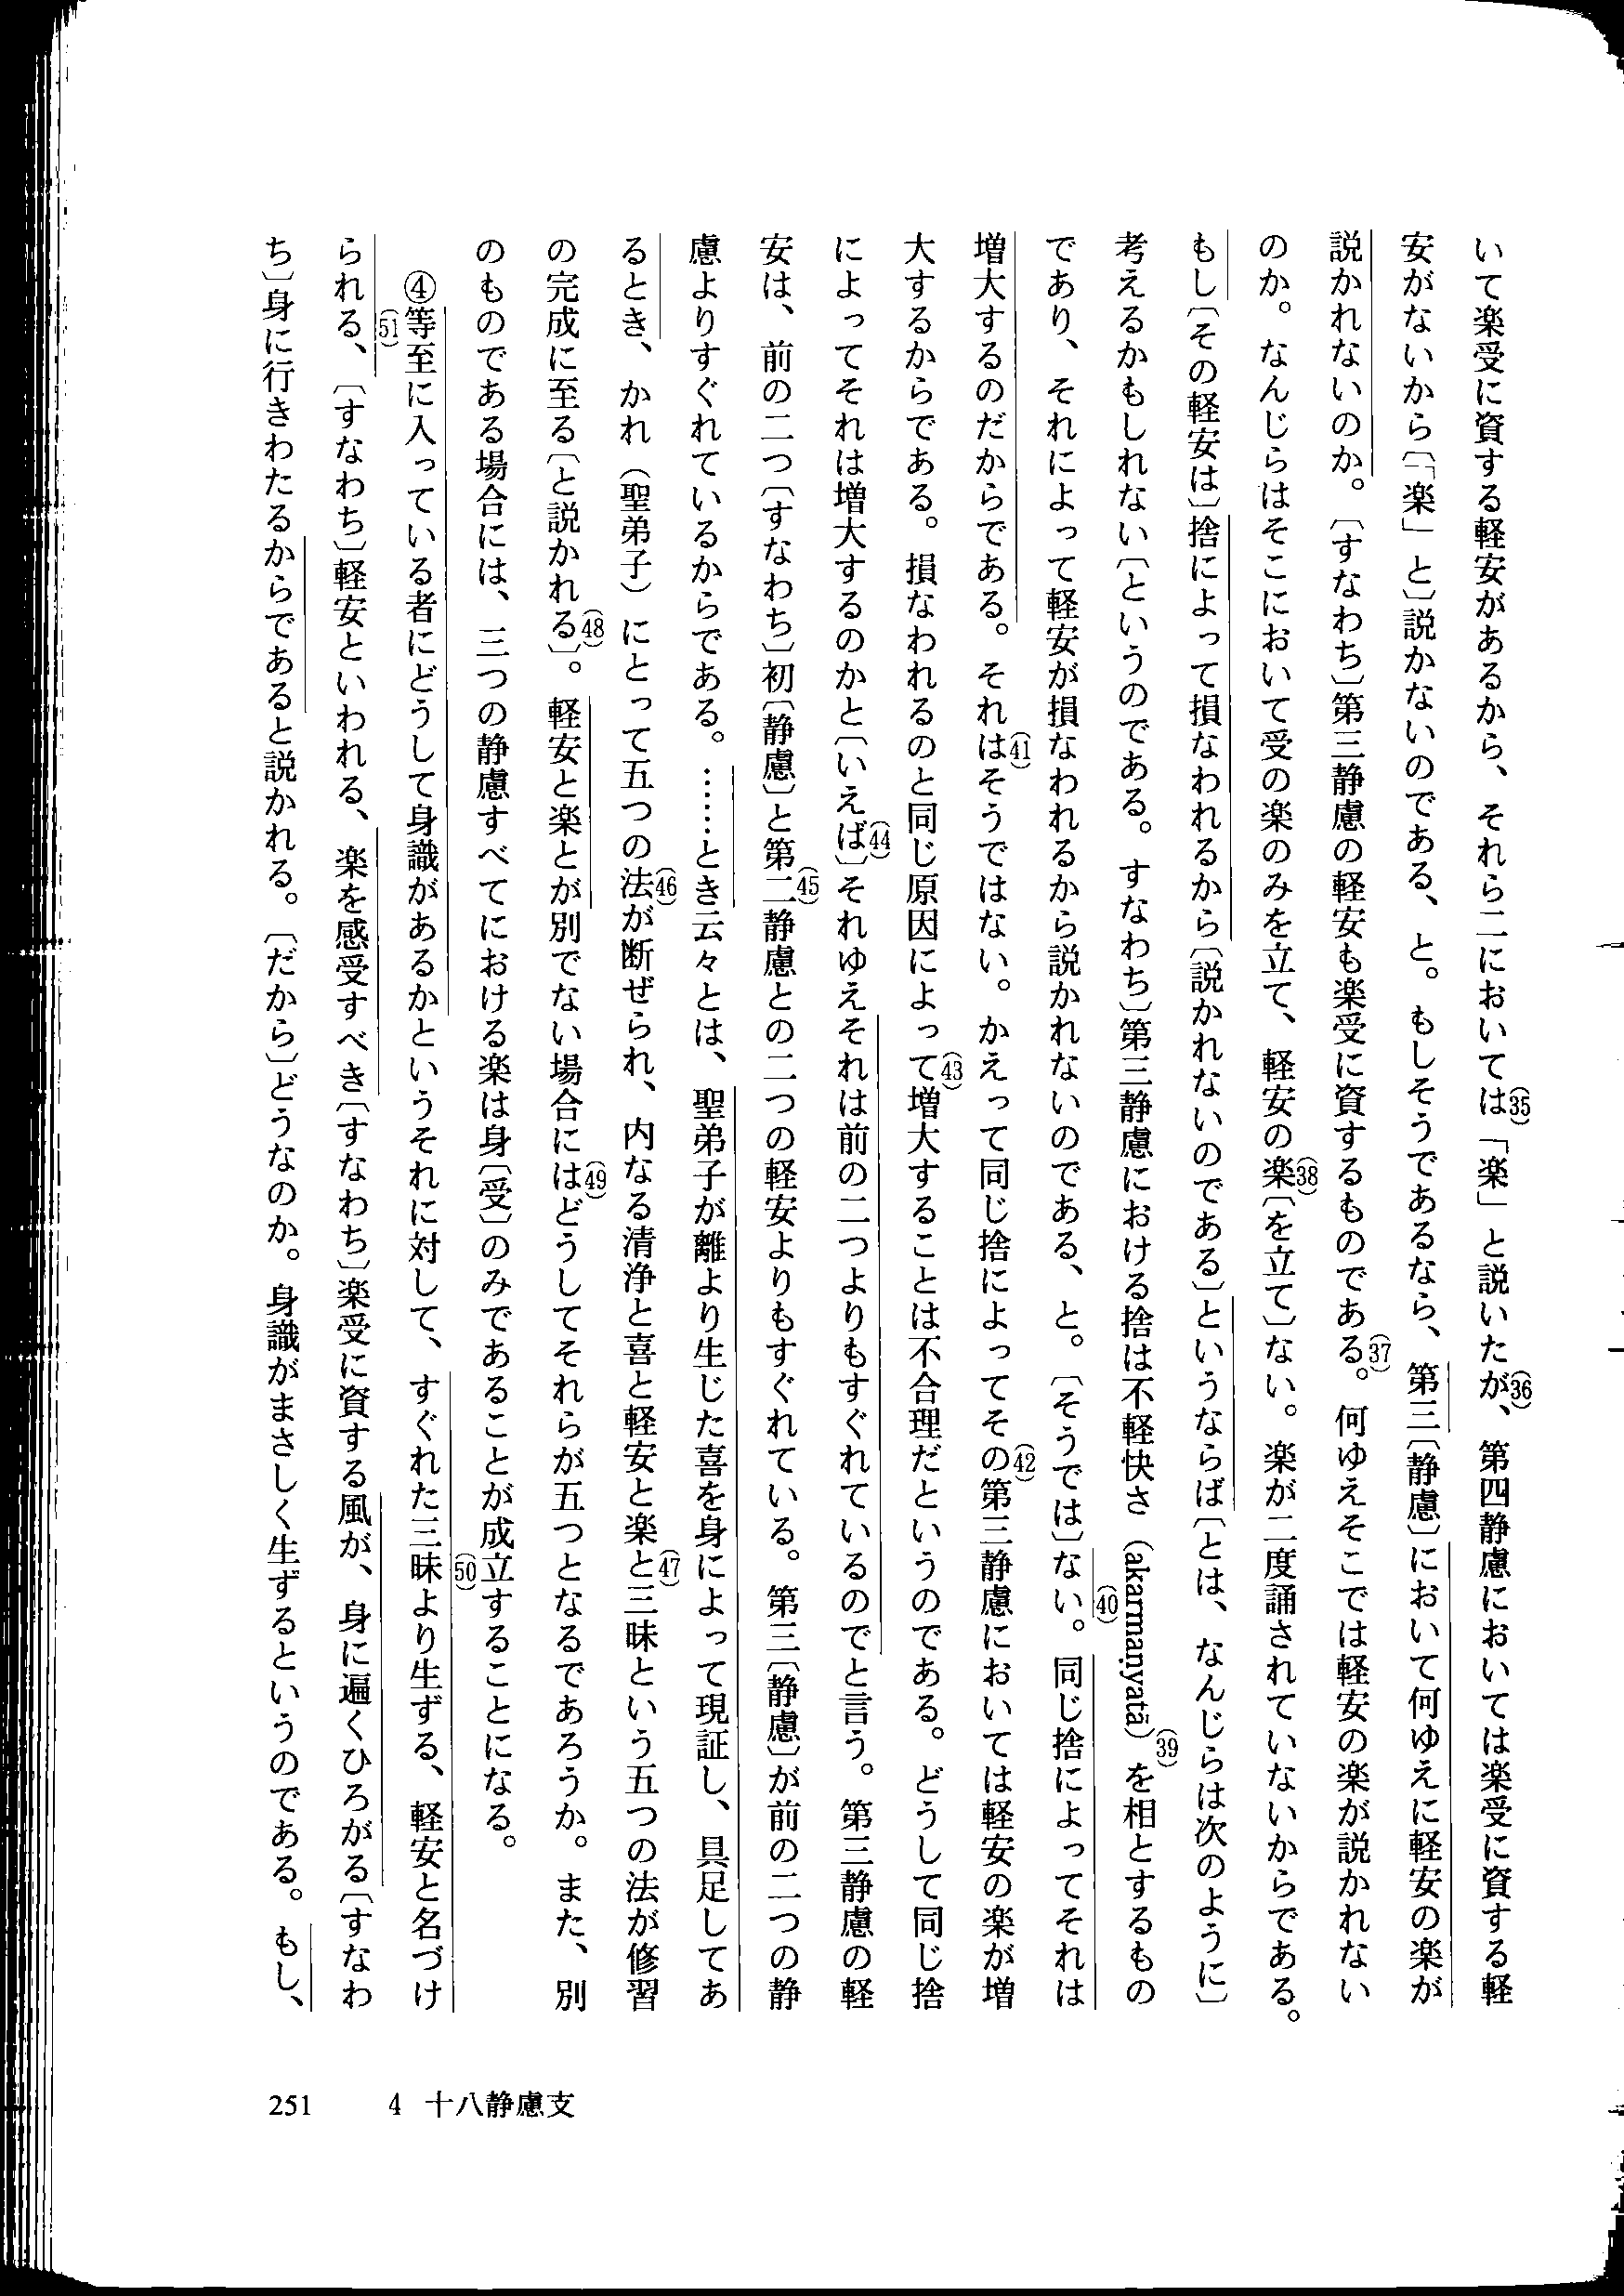 いて楽受に資する軽安があるから、それら二においては(35)「楽」と説いたが(36)、第四静慮においては楽受に資する軽
安がないから〔「楽」と〕説かないのである、と。もしそうであるなら、第三〔静慮〕において何ゆえに軽安の楽が
説かれないのか。〔すなわち〕第三静慮の軽安も楽受に資するものである(37)。何ゆえそこでは軽安の楽が説かれない
のか。なんじらはそこにおいて受の楽のみを立て、軽安の楽(38)〔を立て〕ない。楽が二度誦されていないからである。
もし〔その軽安は〕捨によって損なわれるから〔説かれないのである〕というならば〔とは、なんじらは次のように〕
考えるかもしれない〔というのである。すなわち〕第三静慮における捨は不軽快さ（akarmaṇyatā）(39)を相とするもの
であり、それによって軽安が損なわれるから説かれないのである、と。〔そうでは〕ない(40)。同じ捨によってそれは
増大するのだからである。それは(41)そうではない。かえって同じ捨によってその(42)第三静慮においては軽安の楽が増
大するからである。損なわれるのと同じ原因によって(43)増大することは不合理だというのである。どうして同じ捨
によってそれは増大するのかと〔いえば(44)〕それゆえそれは前の二つよりもすぐれているのでと言う。第三静慮の軽
安は、前の二つ〔すなわち〕初〔静慮〕と第二(45)静慮との二つの軽安よりもすぐれている。第三〔静慮〕が前の二つの静
慮よりすぐれているからである。……とき云々とは、聖弟子が離より生じた喜を身によって現証し、具足してあ
るとき、かれ（聖弟子）にとって五つの法(46)が断ぜられ、内なる清浄と喜と軽安と楽と(47)三昧という五つの法が修習
の完成に至る〔と説かれる(48)〕。軽安と楽とが別でない場合には(49)どうしてそれらが五つとなるであろうか。また、別
のものである場合には、三つの静慮すべてにおける楽は身〔受〕のみであることが成立(50)することになる。
④等至(51)に入っている者にどうして身識があるかというそれに対して、すぐれた三昧より生ずる、軽安と名づけ
られる、〔すなわち〕軽安といわれる、楽を感受すべき〔すなわち〕楽受に資する風が、身に遍くひろがる〔すなわ
ち〕身に行きわたるからであると説かれる。〔だから〕どうなのか。身識がまさしく生ずるというのである。もし、
251　4 十八静慮支